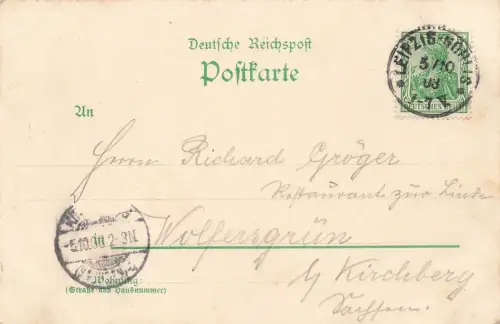 Deutsche Reichspost
Postkarte
LEIPZIG-GOHLIS
5/10
03
1-7 V.
DEUTSCHES REICH
An
Herrn Richard Gröger
Restaurant zur Linde
in Wolfersgrün
5.10.03 2-3N.
b/ Kirchberg
Wohnung:
(Straße und Hausnummer)
Sachsen.